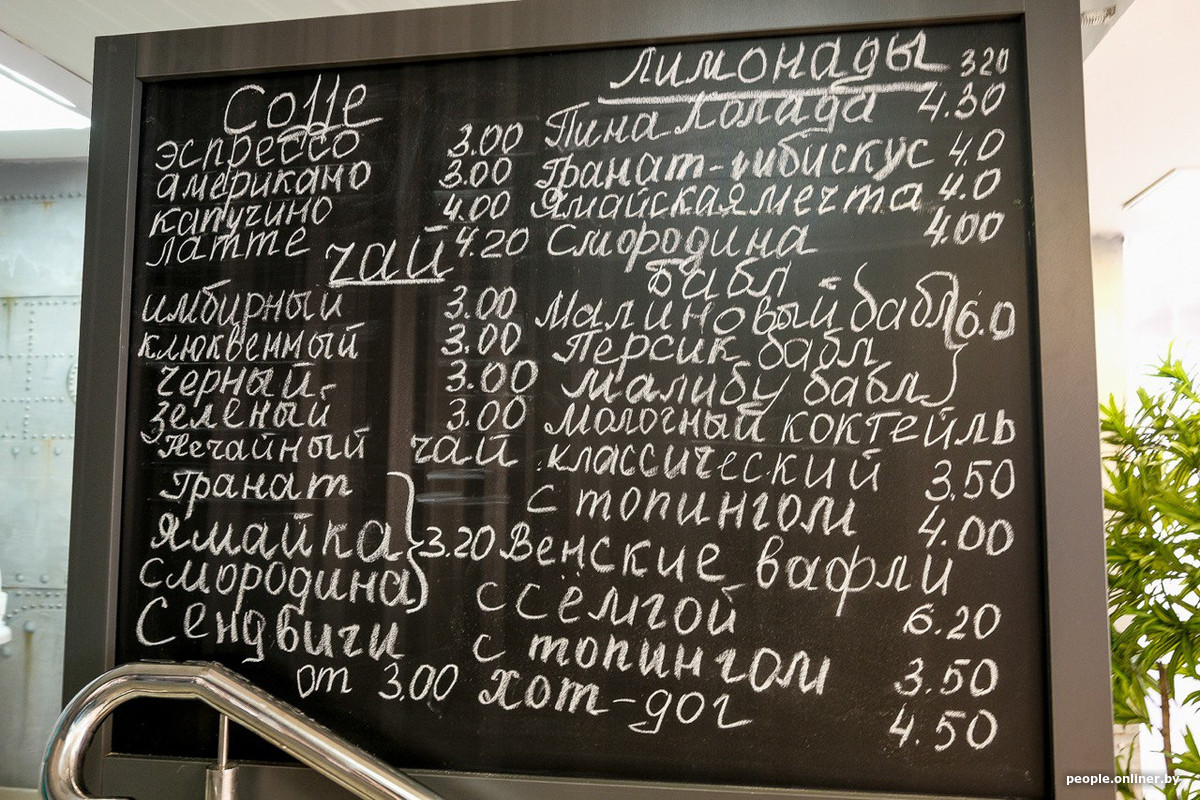 Coffe
эспрессо 3.00
американо 3.00
капучино 4.00
латте 4.20
чай
имбирный 3.00
клюквенный 3.00
черный 3.00
зеленый 3.00
Нечайный чай
Гранат
Ямайка 3.20
смородина
Сендвичи
от 3.00
Лимонады 320
Пина Колада 4.30
Гранат-гибискус 4.0
Ямайская мечта 4.0
Смородина 4.00
Бабл
Малиновый бабл 6.0
Персик бабл
Малибу бабл
Молочный коктейль
классический 3.50
с топингом 4.00
Венские вафли
с сёмгой 6.20
с топингом 3.50
хот-дог 4.50
people.onliner.by